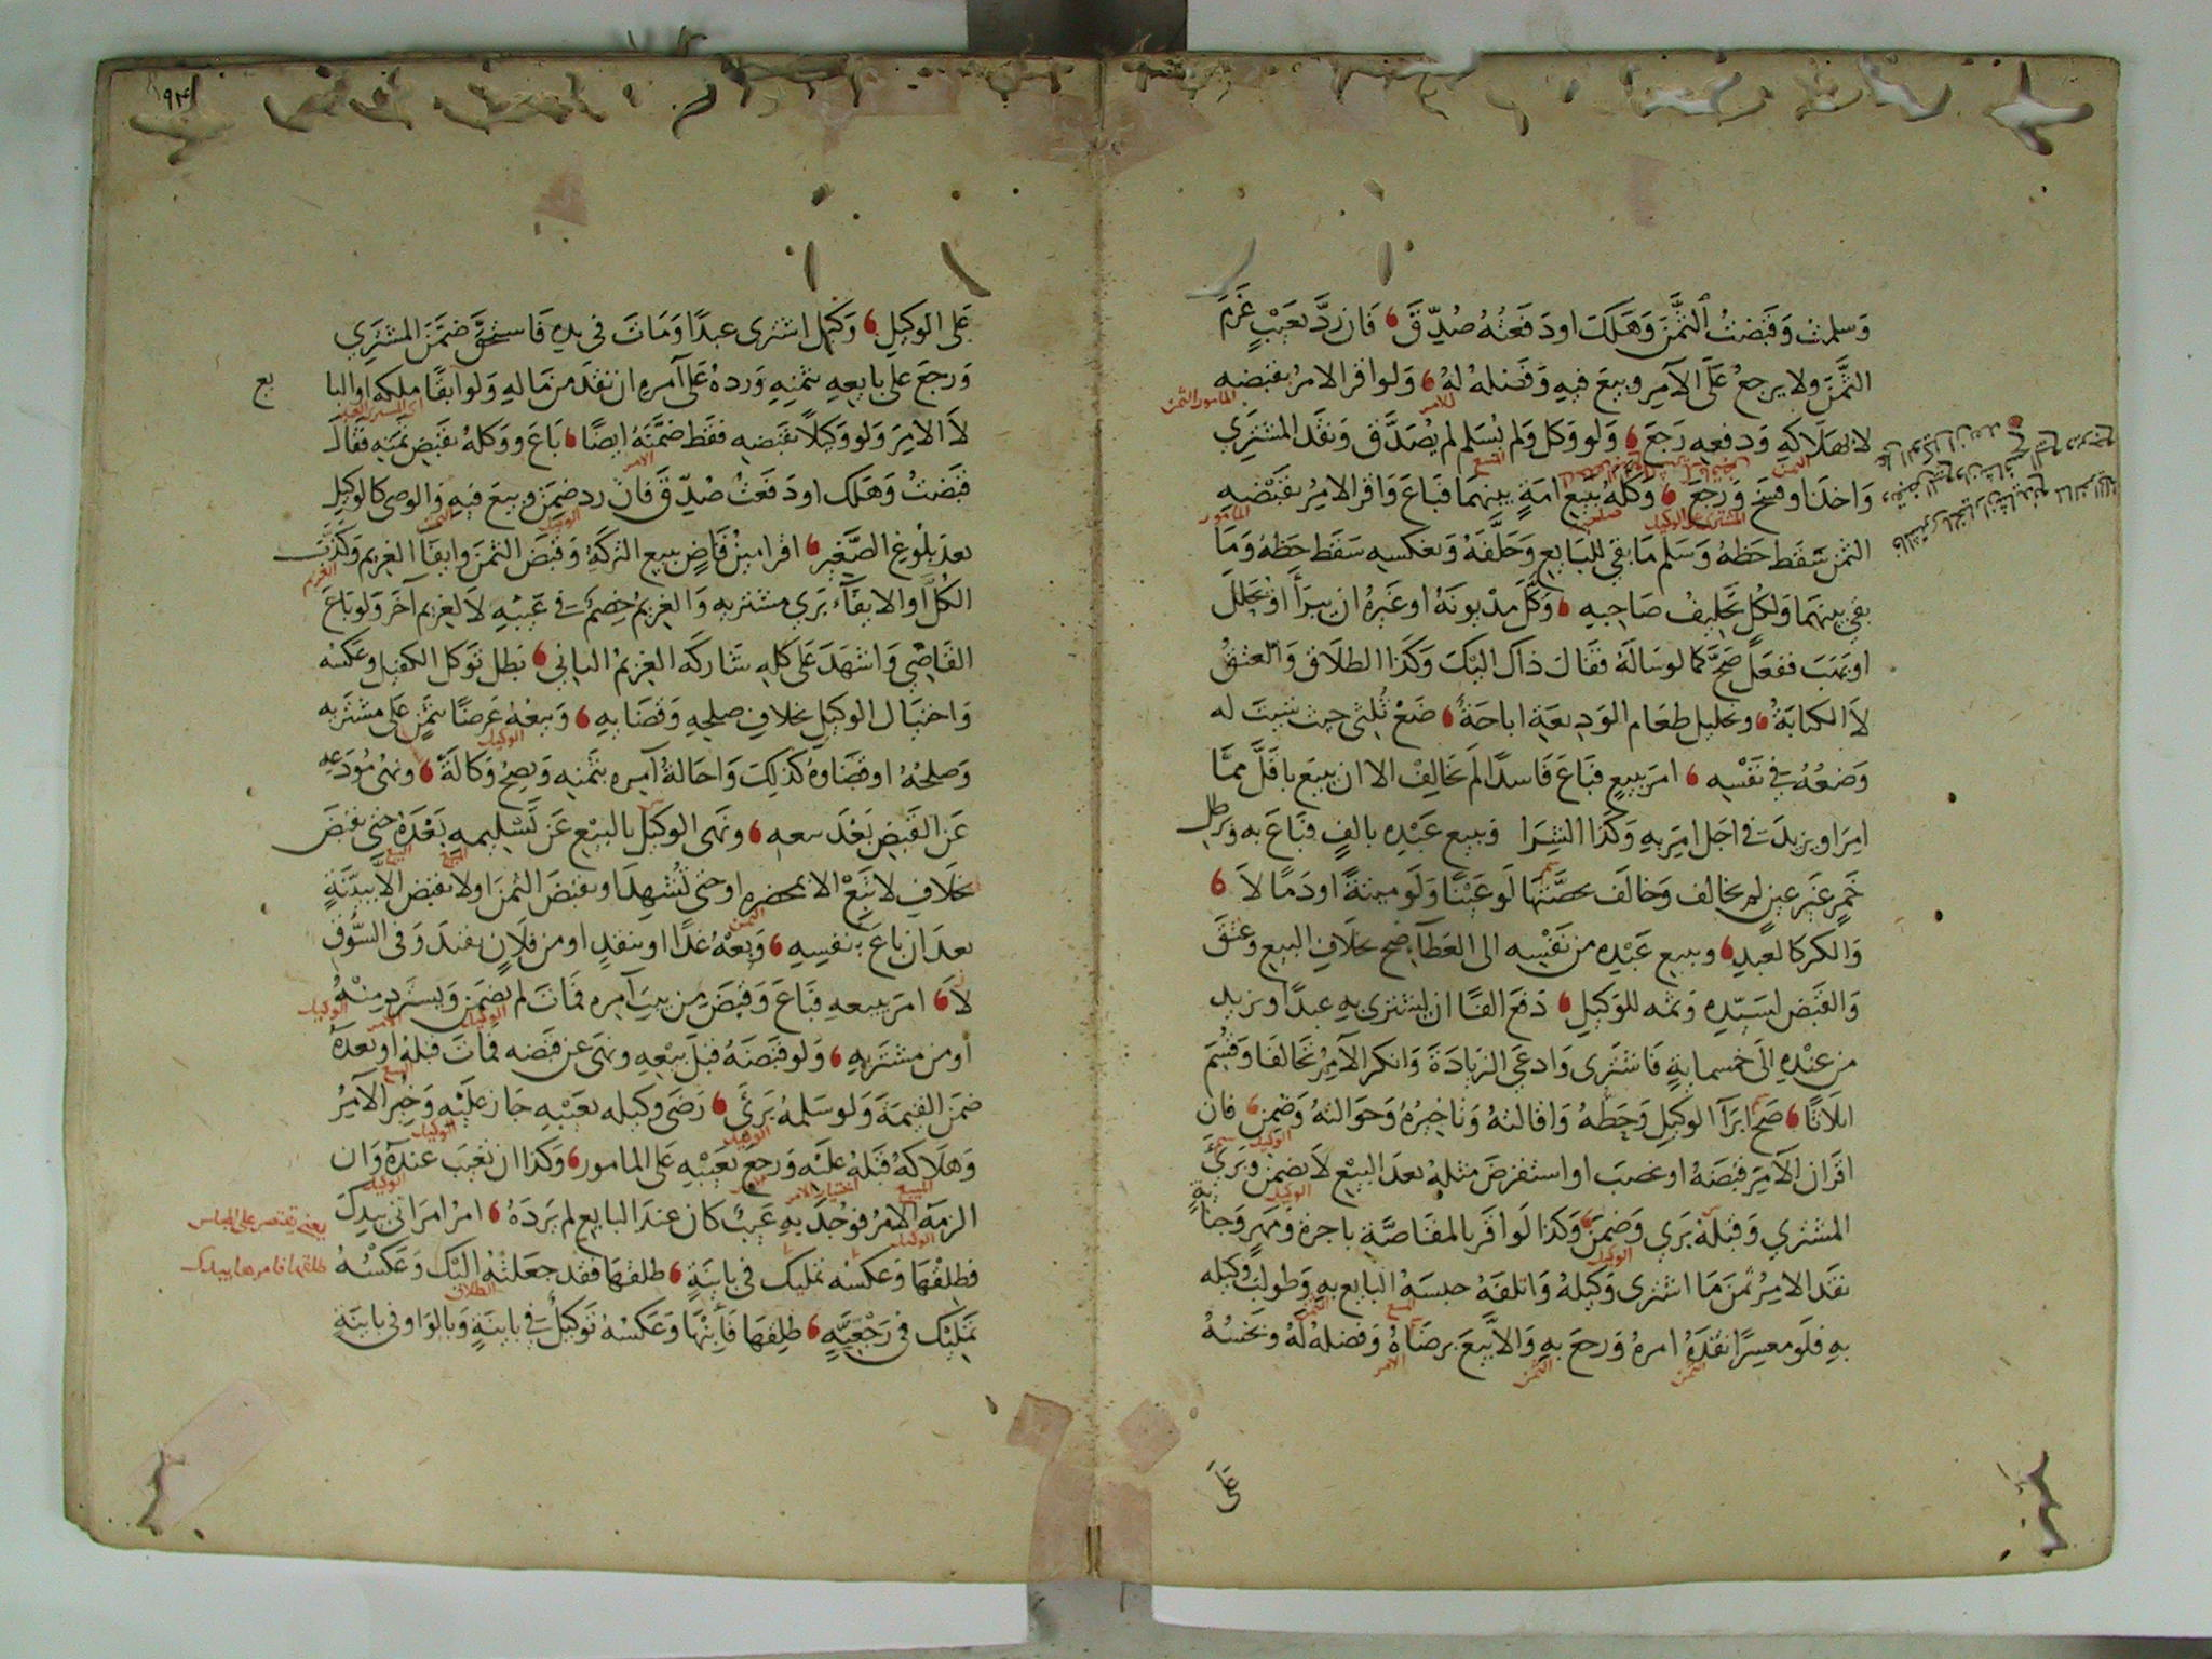 وَسلمتُ وَقَبَضتُ الثَّمَنَ وَهَلَكَ اودَفَعتُهُ صُدِّقَ فَان رَدَّ بعَيبٍ غَرَمَ
الثَّمَنَ ولا يرجعُ عَلَى الآمِرِ وبيعَ فيهِ وَفَضلهُ لهُ وَلَو اقر الامرُ بقبضهِ
لا بهَلَاكهِ وَدفعهِ رَجَعَ وَلو وَكل وَلم يُسَلم لم يصَدَّق وَنقَدَ المشتَرِي
وَاخذنا وفسخ وَرجعَ وَكلهُ ببَيع امَةٍ بينهمَا فبَاعَ وَاقر الامِرُ بقَبْضهِ
الثمنَ سَقَط حَظهُ وَسَلم مَا بقي للبَايع وَحَلَّفهُ وَبعكسهِ سَقَط حَظهُ وَمَا
بقي بينهمَا وَلكُل تَحليفُ صَاحِبهِ وَكَّلَ مدْيونَهُ اوغَيرهُ ان يبرَأ اويحَلل
اويَهَبَ ففعَل صَحَّ كما لو سَالهُ فقَال ذاك اليْكَ وَكَذا الطلاَق وَالعتقُ
لاَ الكتابَةُ وتحليل طعَام الوَديعَةِ اباحَةٌ ضَعْ ثُلثي حيث شيتَ له
وَضعُهُ في نَفْسهِ امرَ ببيعٍ فبَاعَ فَاسدًا لم يَخَالِفْ الا ان يبيعَ باقَلَّ ممَّا
امِرَ اويزيدَ في اجَل امِرَ بهِ وَكَذا الشِرَا وَببيع عَبْدِهِ بالفٍ فبَاعَ به ورطل
خَمرٍ غَير عينٍ لم يخَالف وَخالَف بحصَّتهَا لَو عَيْنًا وَلَو ميتةً اودَمًا لاَ
وَالكر كالعبدِ وببيع عَبْدِهِ من نَفْسِه الى العَطَآءِ صَح بخلاَفِ البيع وَعتقَ
وَالقَبض لسَيّدِهِ وَثمنه للوَكيلِ دَفعَ الفًا ان ليشترى بهِ عبدًا ويزيد
من عنْدِهِ الَى خمسمايةٍ فَاشتَرى وَادعَي الزيَادَةَ وَانكر الآمِرُ تَحَالفَا وَقُسمَ
اثلَاثًا صَح ابرَآ الوكَيلِ وَحَطّهُ وَاقَالتهُ وَتاخيرُهُ وَحوَالتهُ وَضمِنَ فان
اقرَان الآمِرَ قبَضَهُ اوغصبَ اواستقرضَ مثلهُ بعدَ البيْع لاَ يضمن وَبَرِئَ
المشتري وَقبلهُ بَري وَضمِنَ وَكَذا لَو اقر بالمقَاصَّةِ باجرة وَمهرٍ وَجنايةٍ
نقَدَ الامرُ ثمنَ مَا اشتَرى وَكيلهُ وَاتلفَهُ حبسَهُ البايع بهِ وَطولبَ وَكيله
بهِ فلَو معسِرًا نقدَهُ امرهُ وَرجعَ بهِ وَالاَّ بيعَ برضَاهُ وَفضلهُ لهُ وبخسُهُ
عَلَى
١٩٤
عَلَى الوكيلِ وَكيل اشترى عبدًا وَمَاتَ في يدِهِ فَاستحقَّ ضمَّنَ المشتَرِي
وَرجعَ على بايعهِ بثمَنِهِ وَردهُ عَلَى آمرهِ ان نقدَ من مَالهِ وَلو ابقًا ملكه او البا
يع
لاَ الامِرَ وَلو وكَيلاً بقَبضهِ فقَط ضمَّنَهُ ايضًا بَاعَ ووكلهُ بقَبض ثمَنِهِ فقَال
قبَضتُ وَهَلك اودَفعَتُ صُدِّقَ فان رد ضمِنَ وبيعَ فيهِ وَالوصي كالوكيل
بعدَ بلوغ الصَّغير اقر امينُ قَاضٍ ببيع التركَةِ وَقَبض الثمَنَ وايفَا الغريم وَكَذَّبَ
الكُلَّ او الايفَآءَ بَري مشتريه وَالغريمُ خِصَم في غَيبهِ لاَ لغريم آخَرَ وَلو بَاعَ
القَاضِي وَاشهَدَ عَلى كلهِ شَاركَه الغريمُ الثاني بَطل توَكل الكفيل وعكسُه
وَاحتيَال الوكيلِ بخلافِ صلحهِ وَقضَايهِ وَبيعُهُ عَرضًا بثمنٍ على مشتريه
وَصلحُهُ اوقضَاوهُ كذلكَ وَاحَالةُ آمِره بثَمنهِ وَيصحُ وَكالةً ونهىُ مُودَعِهِ
عَن القَبضِ بَعْدَ بيعهِ ونَهَى الوكيل بالبَيْع عَن تَسْليمهِ بَعْدَهُ حتى يقبضَ
بخلاَفِ لا تَبِعْ الا بمحضرهِ اوحَتى تُشْهدَ اويقبضَ الثمنَ اولا يقبض الاَّ ببيّنَةٍ
بعدَ ان باعَ بنفسِهِ وَبعْهُ غدًا اوبنقدٍ اومن فلَانٍ بقيدَ وَفى السُّوقِ
لاَ امرَ ببيعهِ فبَاعَ وَقبَضَ من بيتَ آمِره فمَاتَ لم يضمَن وَيسترد منْهُ
اومن مشتريهِ وَلو قبَضَهُ قبلَ بيْعهِ ونهىَ عن قبضه فمَاتَ قبلهُ اوبَعدَهُ
ضمَنَ القيمَةَ وَلو سَلمهُ بَرِئَ رَضيَ وكيله بعَيْبهِ جَاز عَليْهِ وَخُيرَ الآمِرُ
وَهلَاكهُ قبلهُ علَيْه وَرجعَ بعَيْبهِ عَلى المامور وَكذا ان تعيبَ عندَهُ وَان
الزمَهُ الآمِرُ فوُجدَ بهِ عَيبٌ كان عندَ البايع لم يَردَهُ امرُ امرَاتى بيدِكَ
فطلقْهَا وَعكسُه تمليك في باينَةٍ طلقهَا فقد جعَلتُه اليْك وَعَكسُهُ
تمَليْك في رَجْعيَّهٍ طلِقهَا فَأبِنْهَا وَعَكسُهُ توَكيل في باينَةٍ وَبالوَاوفى باينَةٍ
يعني يقتصر على المجلس
طلقها فامرها بيدك